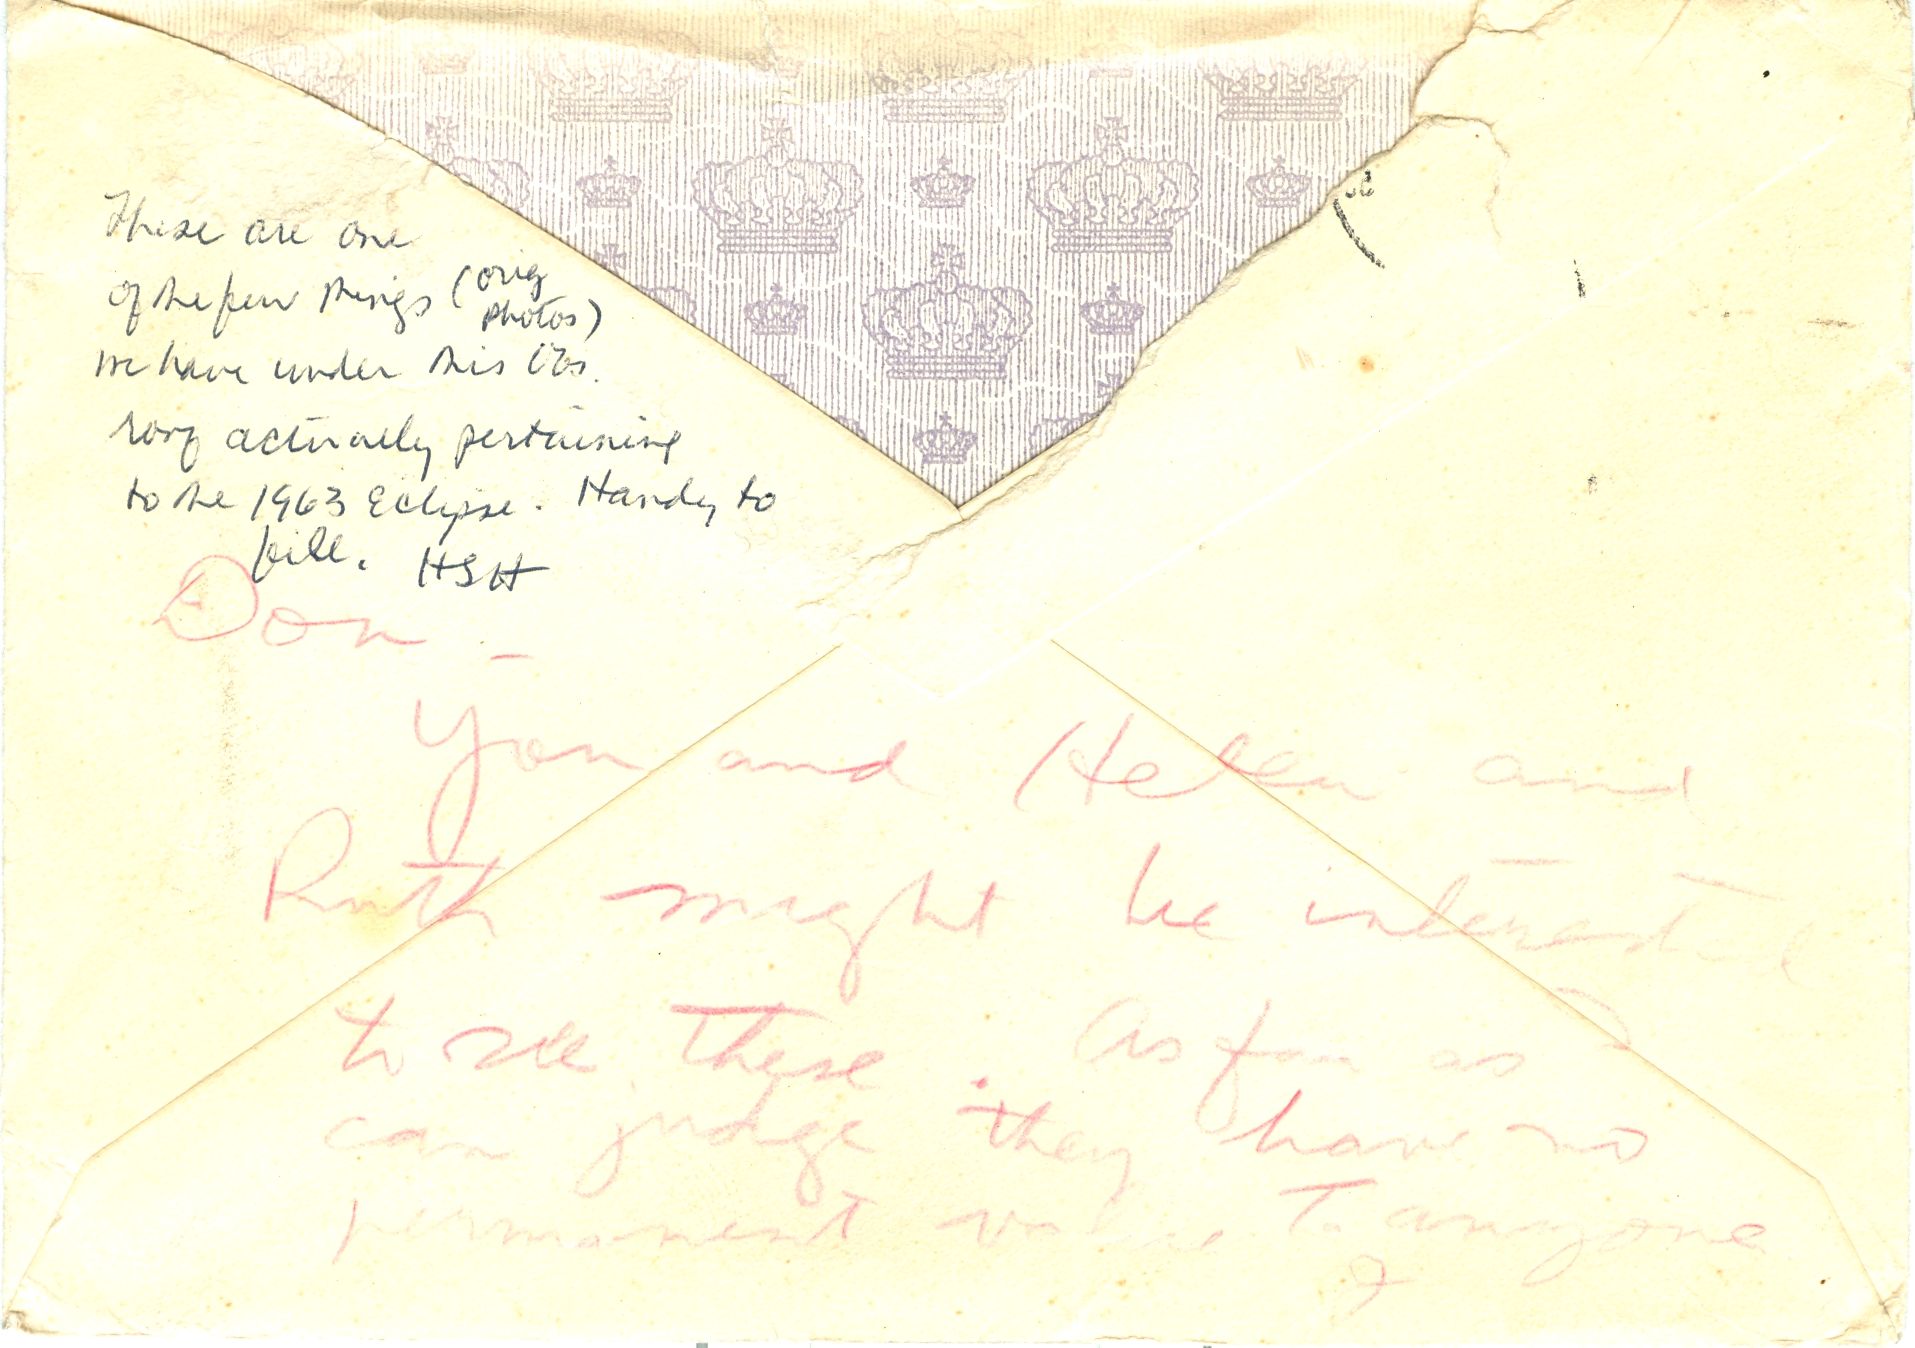 These are one
of the few things (orig
photos)
we have under this
actually pertaining
to the 1963 Eclipse. Handy to
file. HSH
Don –
You and Helen and
Ruth might be interested
to see these. As far as I
can judge they have no
permanent value to anyone